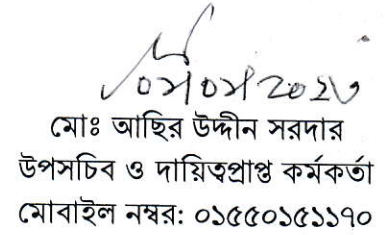 মোঃ আছির উদ্দীন সরদার
উপসচিব ও দায়িত্বপ্রাপ্ত কর্মকর্তা
মোবাইল নম্বর: ০১৫৫০১৫১১৭০